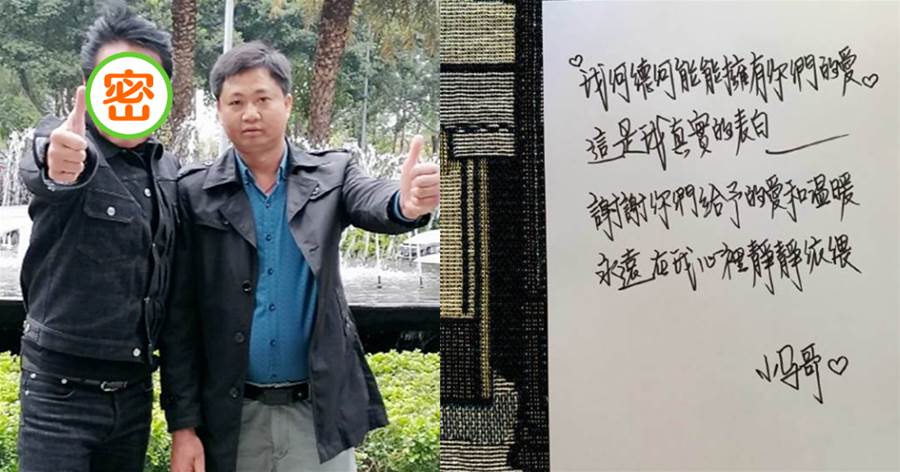 密
我何德何能能擁有你們的愛
這是我真實的表白
謝謝你們給予的愛和温暖
永遠在我心裡靜靜依偎
小马哥